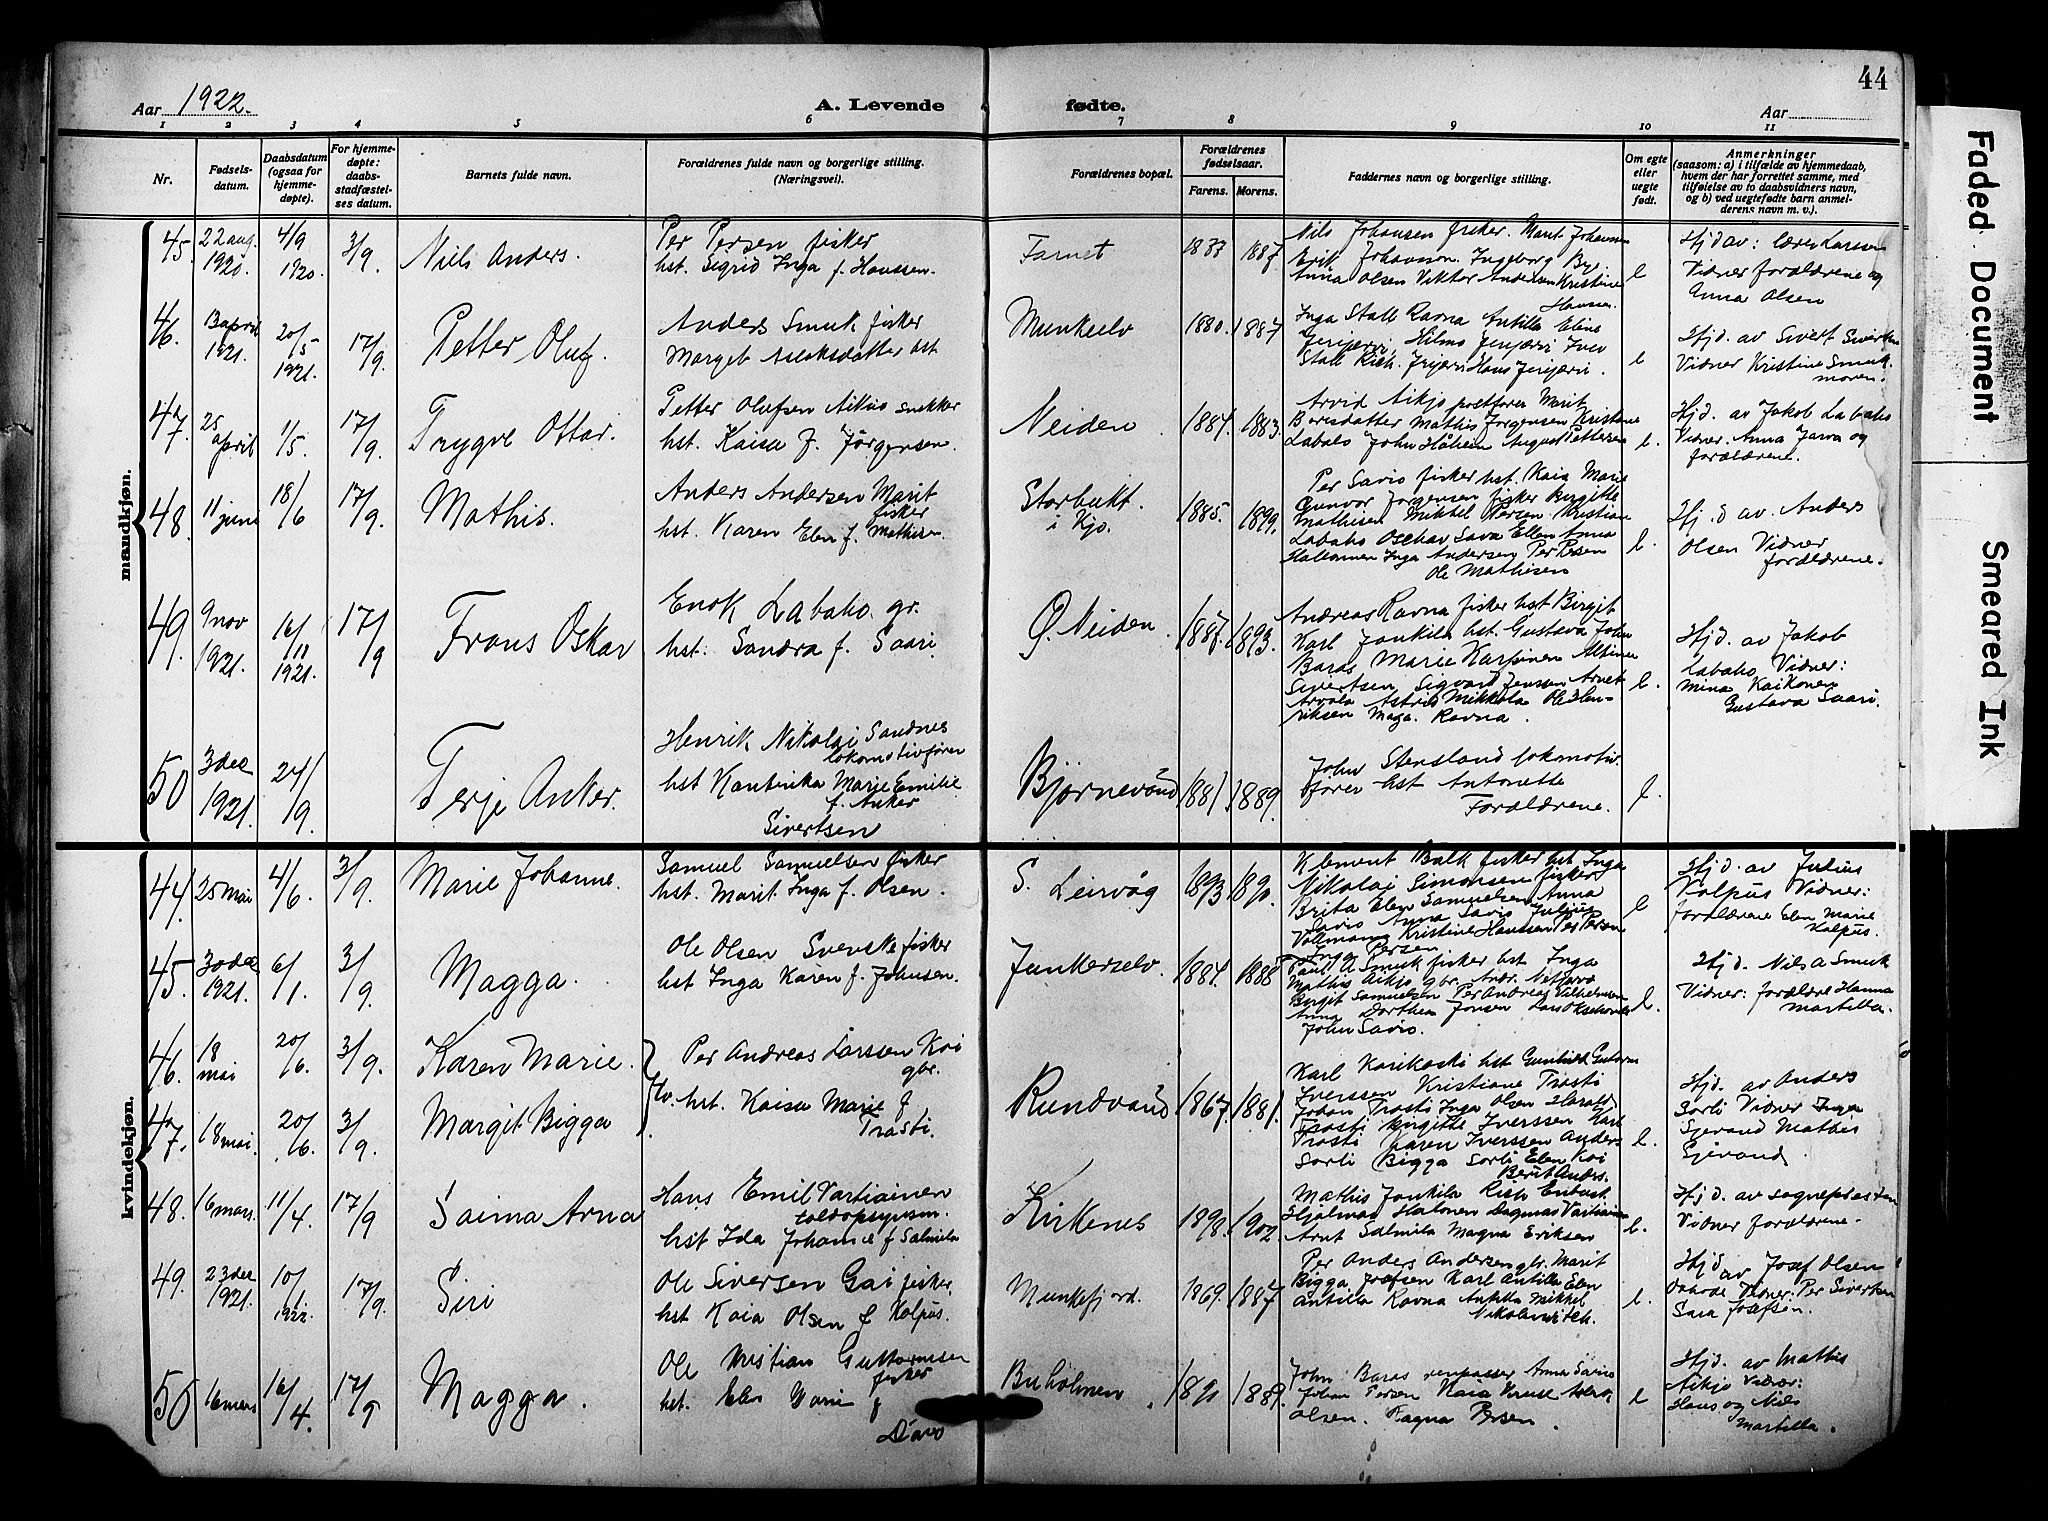 44
Aar 1922.
A. Levende
fødte.
Aar
1 2 3 4 5 6 7 8 9 10 11
Nr.
Fødsels-
datum.
Daabsdatum
(ogsaa for
hjemme-
døpte).
For hjemme-
døpte:
daabs-
stadfæstel-
ses datum.
Barnets fulde navn.
Forældrenes fulde navn og borgerlige stilling.
(Næringsvei).
Forældrenes bopæl.
Forældrenes
fødselsaar.
Farens.
Morens.
Faddernes navn og borgerlige stilling.
Om egte
eller
uegte
født.
Anmerkninger
(saasom: a) i tilfælde av hjemmedaab,
hvem der har forrettet samme, med
tilføielse av to daabsvidners navn,
og b) ved uegtefødte barn anmel-
derens navn m. v.).
mandkjøn.
45.
22 aug.
1920.
4/9
1920.
3/9.
Niels Anders.
Per Persen fisker
hst. Sigrid Inga f. Hanssen.
Farnet
1883
1887.
Nils Johansen fisker. Marit Johansen
Erik Johansen. Ingeborg Bye
Anna Olsen Viktor Andersen Kristine
Hansen
e
Hjd av: lærer Larssen
Vidner forældrene og
Anna Olsen
46.
13 april
1921.
20/5
1921.
17/9.
Petter Oluf.
Anders Smuk fisker
Margit Aslaksdatter hst
Munkelv
1880.
1887
Inga Stall Ravna Antilla Eline
Jerijervi Hilmo Jerijervi Iver
Stall Rich. Jerijervi Hans Jerijervi.
e
Hjd. av Sivert Sivertsen
Vidner Kristine Smuk
moren.
47.
25
april
1/5.
17/9.
Trygve Ottar.
Petter Olufsen Aikio snekker
hst. Kaisa f. Jørgensen.
Neiden
1884.
1883.
Arvid Aikjo postfører Marit
Berisdatter Mathis Jørgensen Kristiane
Labaho John Håheim August Pettersen
e.
Hjd. av Jakob Labaho
Vidner: Anna Jarva og
forældrene.
48.
11 juni
18/6
17/9.
Mathis.
Anders Andersen Marit
fisker
hst. Karen Elen f. Mathisen
Storbukt
i Kjo.
1885.
1899.
Per Savio fisker hst. Kaia Marie
Gunvor Jørgensen fisker Birgitte
Mathisen Mikkel Persen Kristian
Labaho Oschar Sava Ellen Anna
Haltonen Inga Andersen Per Persen
Ole Mathisen
e.
Hj.d av. Anders
Olsen Vidner
forældrene.
49.
9 nov
1921.
16/11
1921.
17/9
Frans Oskar
Enok Labaho gr.
hst. Sandra f. Saari.
Ø. Neiden.
1887.
1893.
Andreas Ravna fisker hst Birgit
Karl Jonkila hst. Gustava John
Baras Marie Karpinen Altinen
Sivertsen Sigvard Jenssen Arnet
Arvola Astrid Mikkola Ole Hen-
riksen Maga Ravna.
e.
Hjd. av Jakob
Labaho Vidner:
Mina Kaikonen
Gustava Saari.
50
3 dec
1921.
24/9.
Terje Anker.
Henrik Nikolai Sandnes
lokomotivfører
hst Hantrika Marie Emilie
f. Anker
Sivertsen
Bjørnevand
1881.
1889.
John Stensland lokomotiv
fører hst Antonette
Forældrene.
e.
kvindekjøn.
44.
25 mai
4/6.
3/9.
Marie Johanne.
Samuel Samuelsen fisker
hst. Marit Inga f. Olsen.
S. Leirvåg
1893
1890.
Klement Balk fisker hst Inga
Nikolai Simonsen fisker
Brita Elen Samuelsen Anna
Savio Anna Savio Julius
Vollmann Kristine Hanssen Per Persen
Inga Persen
e
Hjd. av Julius
Kolpus Vidner:
forældrene Elen Marie
Kolpus.
45.
30 dec
1921.
6/1.
3/9.
Magga.
Ole Olsen Svenske fisker
hst Inga Karen f. Johnsen.
Junkerselv.
1884.
1888
Paul A Smuk fisker hst Inga
Mathis Aikjo gbr. Andr. Nilsen
Birgit Samuelsen Per Andreas Vilhelmsen
Anna Dorthea Jonsen Lars
John Savio.
e.
Hjd. Nils A Smuk
Vidner: forældre Hanna
Martilla.
46.
18
mai
20/6.
3/9.
Karen Marie.
Per Andreas Larssen Koi
gbr.
tv. hst. Kaisa Marie f
Trasti.
47.
18 mai.
20/6.
3/9.
Margit Bigga
Rundvand
1867.
1881.
Karl Karikoski hst Gunhild Gustava
Iverssen Kristiane Trasti
Johan Trasti Inga Olsen Harald
Trasti Birgitte Iverssen Karl
Trasti Karen Iverssen Anders
Sorli Bigga Sorli Elen Koi
Berit Anders.
e.
Hjd. av Anders
Sorli Vidner Inga
Sjerand Mathis
Sjerand
48.
16 mars.
11/4.
17/9
Saima Arna
Hans Emil Vartiainen
toldopsynsm.
hst Ida Johanne f Salmila
Kirkenes
1898.
1902.
Mathis Jonkila Rich Enbusk
Hjalmar Halonen Dagmar Vartiainen
Arnt Salmila Magna Eriksen
e.
Hjd. av sognepresten
Vidner forældrene.
49.
23 dec
1921.
10/1
1922.
17/9.
Siri
Ole Siversen Gai fisker.
hst Kaia Olsen f Kolpus.
Munkefjord.
1869.
1887
Per Anders Andersen gbr. Marit
Bigga Josefsen Karl Antilla Elen
Antilla Ravna Antilla Mikkel
e.
Hjd av Josef Olsen
Vidner. Per Sivertsen
Sara Josefsen.
50
16 mars
16/4.
17/9
Magga.
Ole Kristian Guttormsen
fisker
hst. Elen Marie f
Savio
Buholmen
1890
1889.
John Baras renpasser Anna Savio
Johan Persen Kaia Kruse
Olsen. Ragna Persen.
e
Hjd. av Mathis
Aikjo Vidner:
Hans og Nils
Martilla.
Faded Document
Smeared Ink